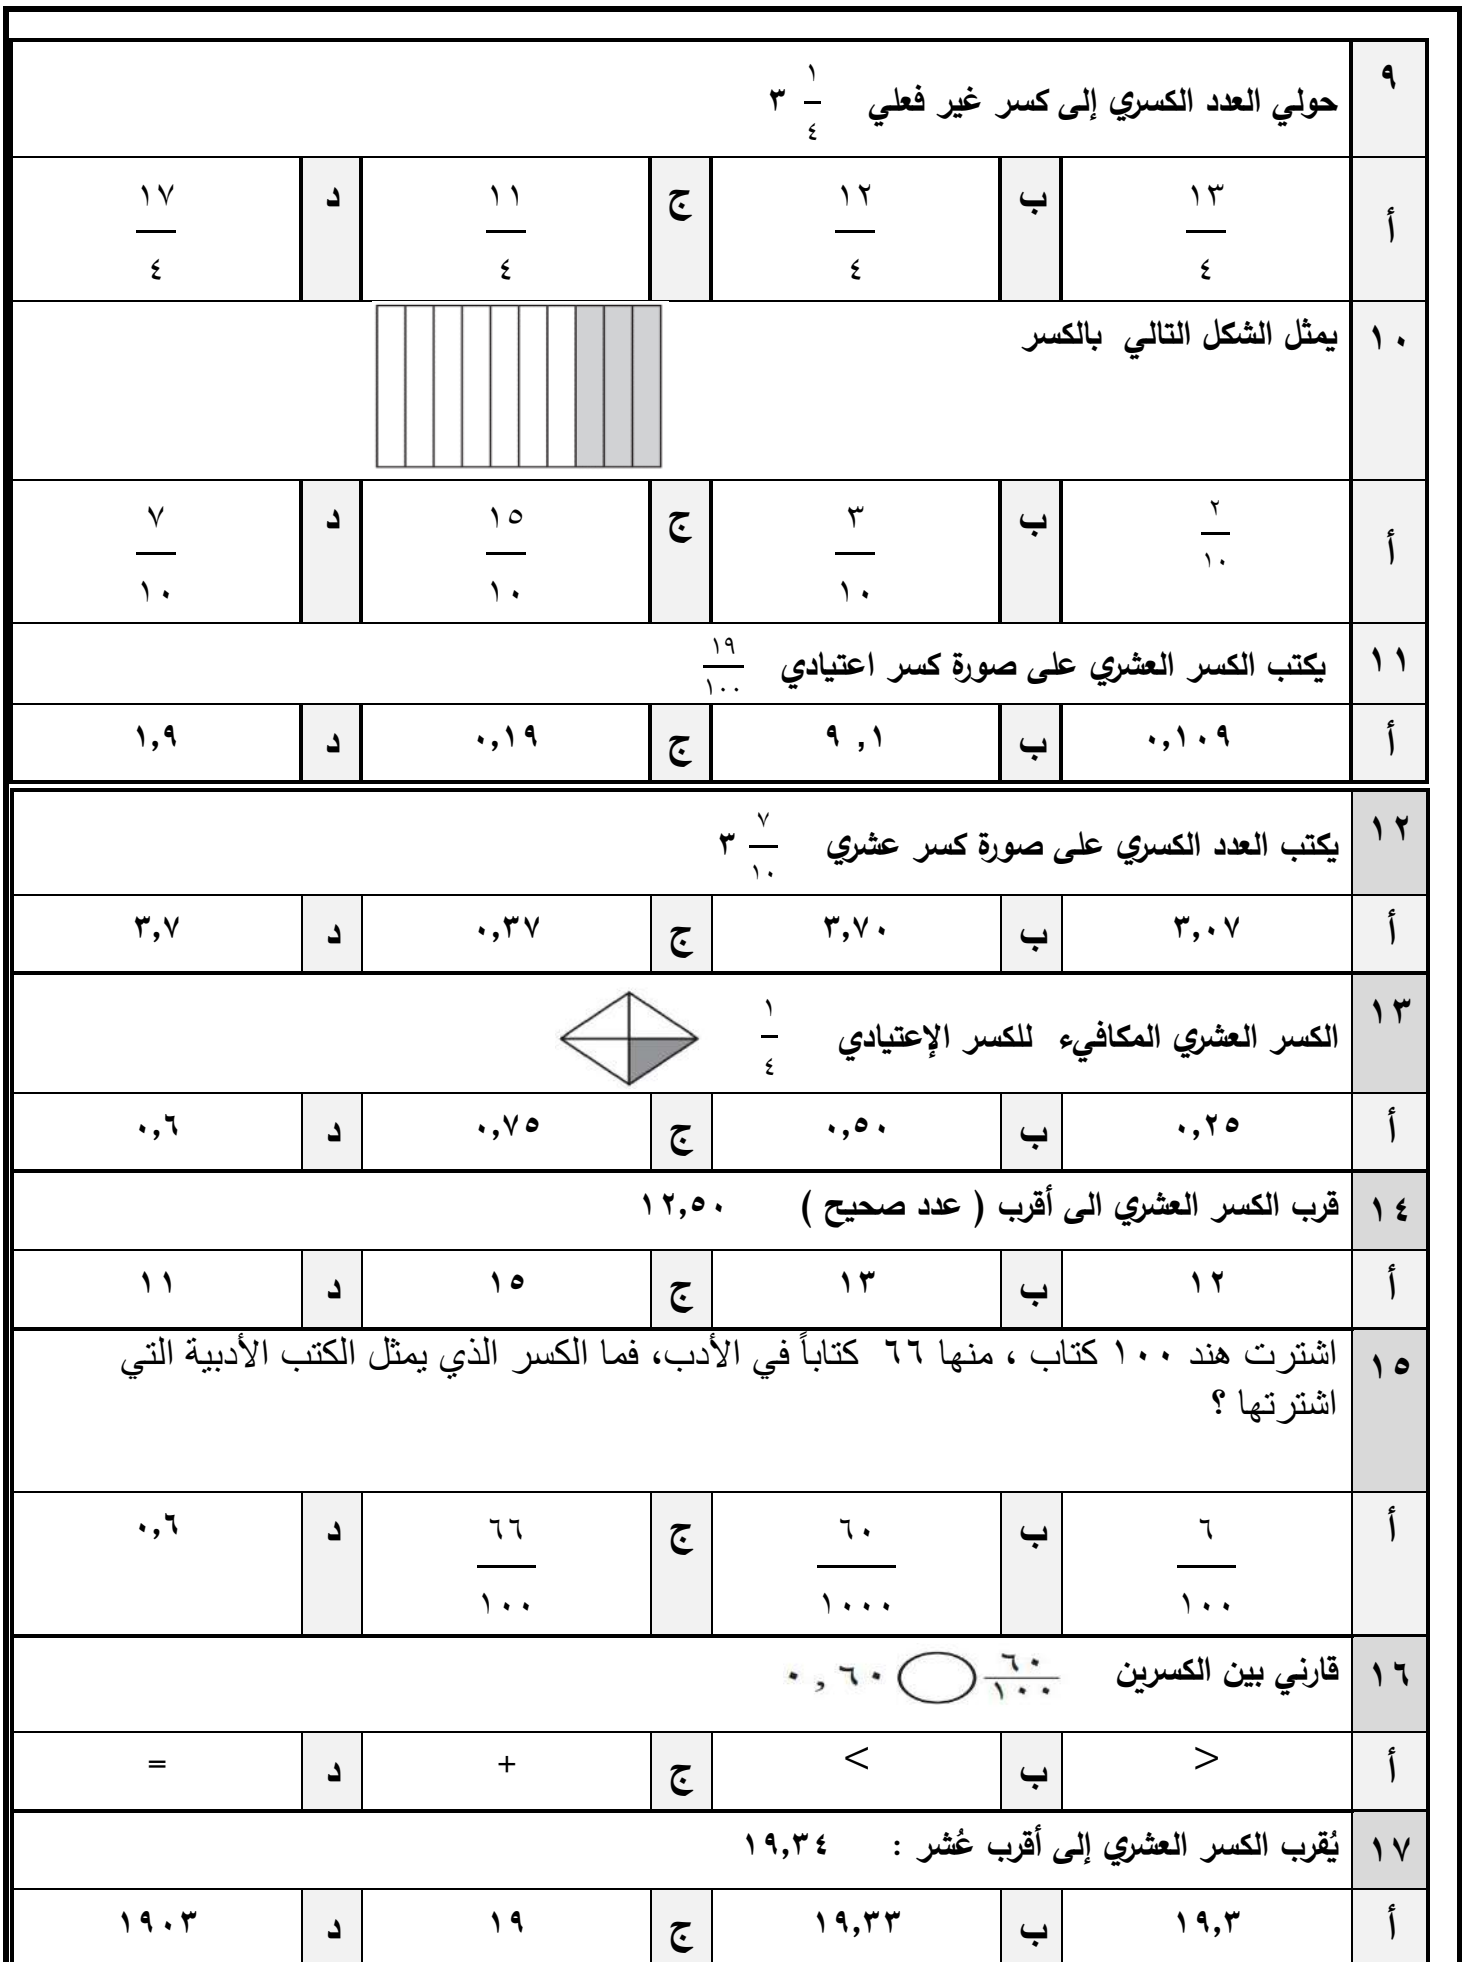 ٩ حولي العدد الكسري إلى كسر غير فعلي ٣ ١/٤
أ ١٣/٤ ب ١٢/٤ ج ١١/٤ د ١٧/٤
١٠ يمثل الشكل التالي بالكسر
أ ٢/١٠ ب ٣/١٠ ج ١٥/١٠ د ٧/١٠
١١ يكتب الكسر العشري على صورة كسر اعتيادي ١٩/١٠٠
أ ٠,١٠٩ ب ٩ ,١ ج ٠,١٩ د ١,٩
١٢ يكتب العدد الكسري على صورة كسر عشري ٣ ٧/١٠
أ ٣,٠٧ ب ٣,٧٠ ج ٠,٣٧ د ٣,٧
١٣ الكسر العشري المكافيء للكسر الإعتيادي ١/٤
أ ٠,٢٥ ب ٠,٥٠ ج ٠,٧٥ د ٠,٦
١٤ قرب الكسر العشري الى أقرب ( عدد صحيح ) ١٢,٥٠
أ ١٢ ب ١٣ ج ١٥ د ١١
١٥ اشترت هند ١٠٠ كتاب ، منها ٦٦ كتاباً في الأدب، فما الكسر الذي يمثل الكتب الأدبية التي
اشترتها ؟
أ ٦/١٠٠ ب ٦٠/١٠٠٠ ج ٦٦/١٠٠ د ٠,٦
١٦ قارني بين الكسرين ٦٠/١٠٠ ٠,٦٠
أ > ب < ج + د =
١٧ يُقرب الكسر العشري إلى أقرب عُشر : ١٩,٣٤
أ ١٩,٣ ب ١٩,٣٣ ج ١٩ د ١٩٠٣